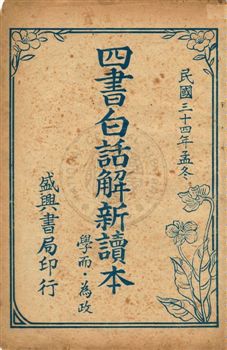 民國三十四年孟冬
四書白話解新讀本
學而·為政
盛興書局印行